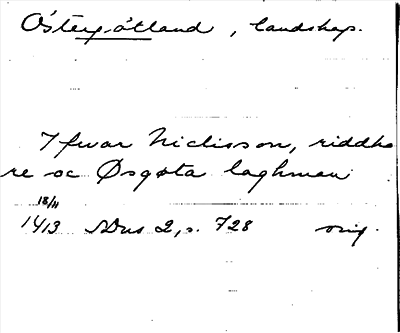 Östergötland, landskap.
Ifwar Niclisson, riddha
re oc Øsgøta laghman
18/11
1413 SDns 2, s. 728 orig.